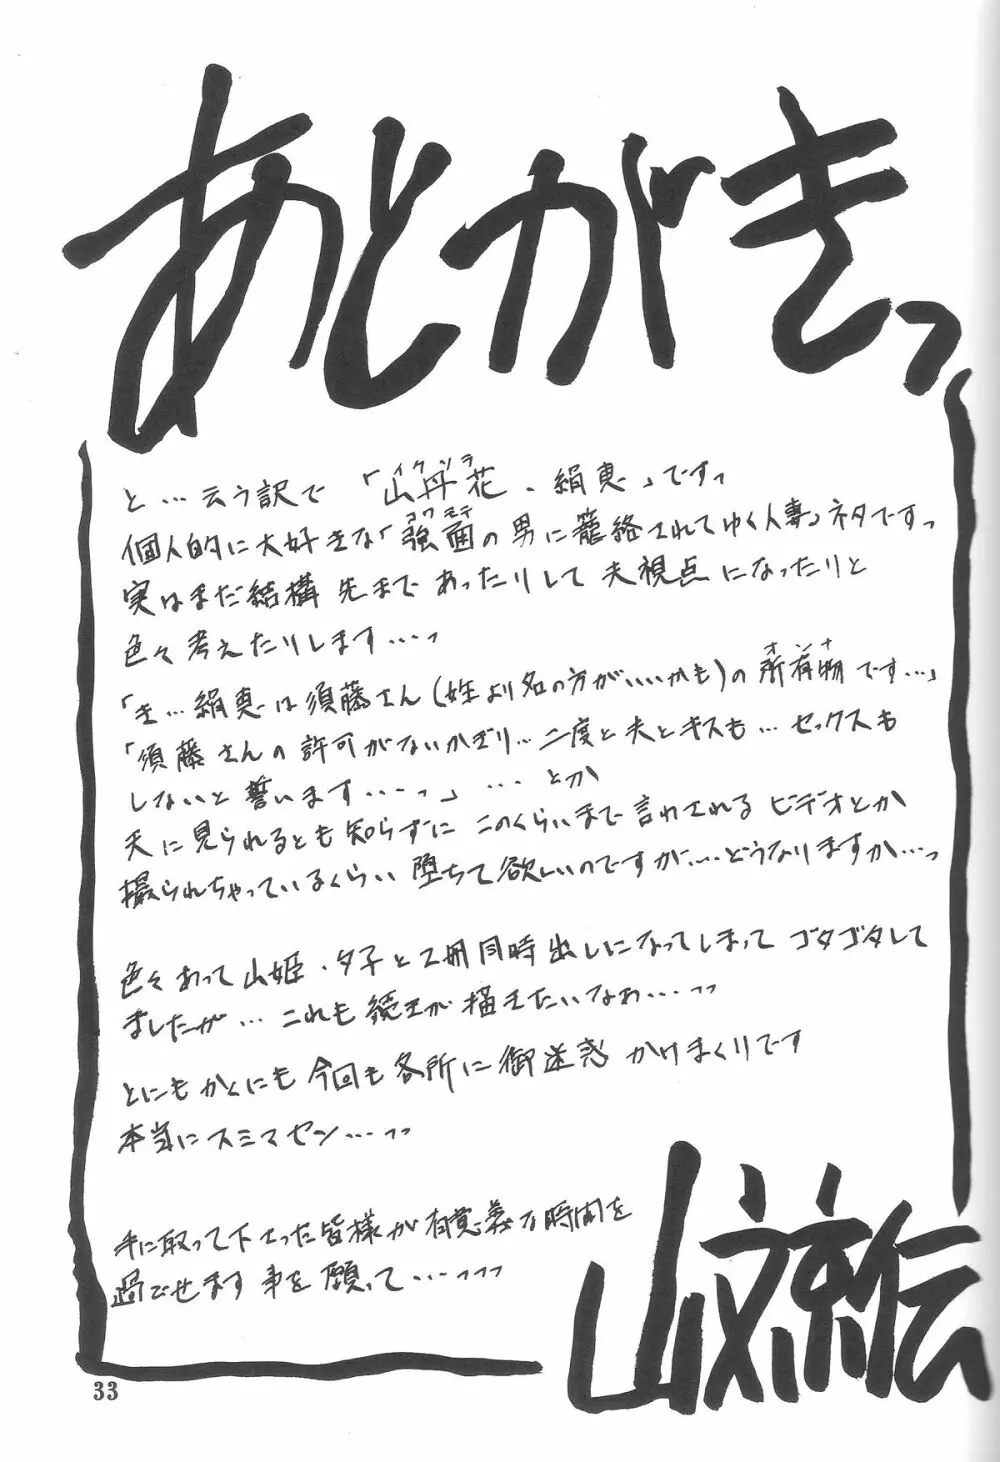 あとがきっ
と…云う訳で「山丹花、絹恵」ですっ
イクソラ
個人的に大好きな「強面の男に籠絡されてゆく人妻」ネタですっ
コワモテ
実はまだ結構先まであったりして夫視点になったりと
色々考えたりします…っ
「き…絹恵は須藤さん(姓より名の方がいいかも)の所有物です…」
オンナ
「須藤さんの許可がないかぎり…二度と夫とキスも…セックスも
しないと誓います……っ」……とか
夫に見られるとも知らずにこのくらいまで言わされるビデオとか
撮られちゃっているくらい堕ちて欲しいのですが…どうなりますか…っ
色々あって山姫・夕子と2冊同時出しになってしまってゴタゴタして
ましたが…これも続きが描きたいなぁ…っっ
とにもかくにも今回も各所に御迷惑かけまくりです
本当にスミマセン…っっ
手に取って下さった皆様が有意義な時間を
過ごせます事を願って…っっっ
山文京伝
33